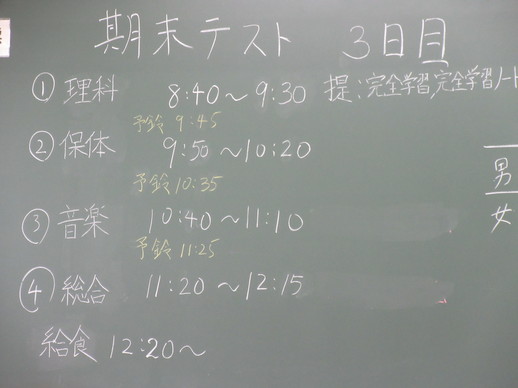 期末テスト 3日目
① 理科 8:40～9:30 提:完全学習,完全学習ノート
予鈴 9:45
② 保体 9:50～10:20
予鈴 10:35
③ 音楽 10:40～11:10
予鈴 11:25
④ 総合 11:20～12:15
給食 12:20～
男
女